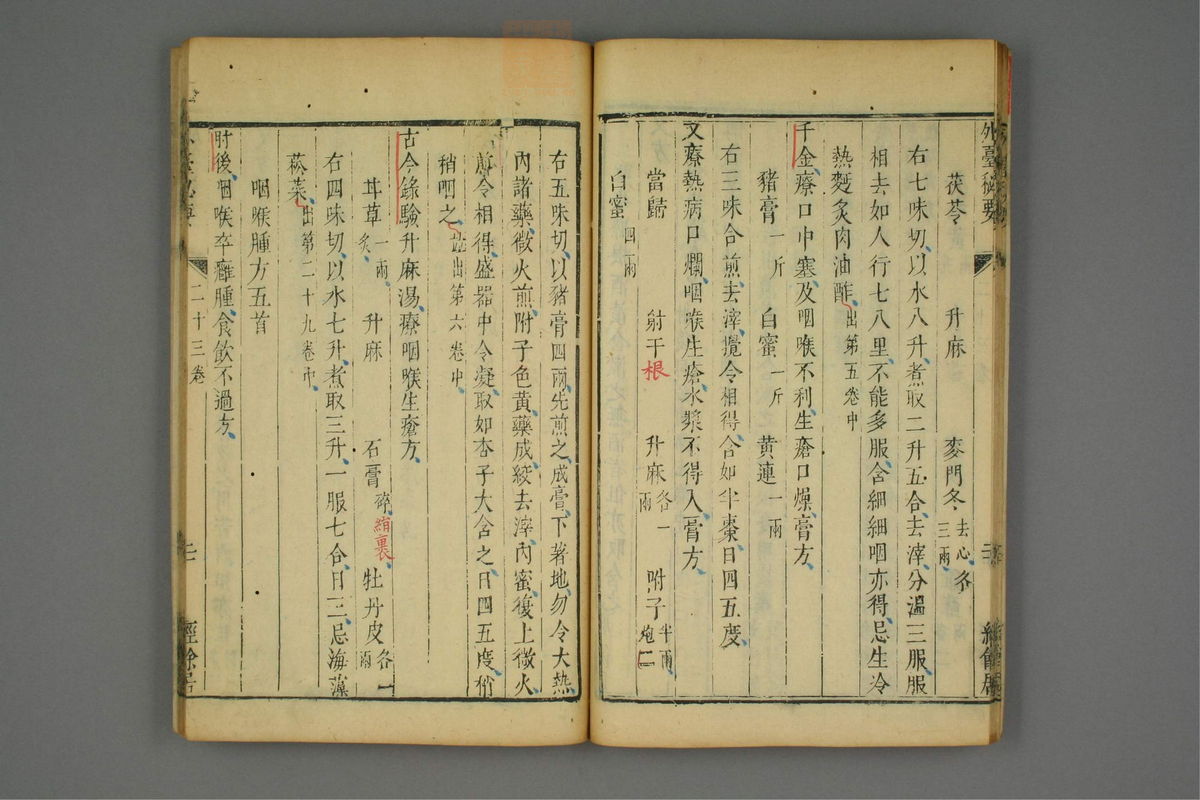 外臺秘要
茯苓 升麻 麥門冬去心各三兩
右七味切以水八升煮取二升五合去滓分溫三服服
相去如人行七八里不能多服含細細咽亦得忌生冷
熱麪炙肉油酢出第五卷中
千金療口中塞及咽喉不利生瘡口燥膏方
豬膏一斤 白蜜一斤 黄連一兩
右三味合煎去滓攪令相得含如半棗日四五度
又療熱病口爛咽喉生瘡水漿不得入膏方
當歸 射干根 升麻各一兩 附子半兩炮二
白蜜四兩
右五味切以豬膏四兩先煎之成膏下著地勿令大熱
內諸藥微火煎附子色黄藥成絞去滓內蜜復上微火
煎令相得盛器中令凝取如杏子大含之日四五度稍
稍咽之出第六卷中
古今錄驗升麻湯療咽喉生瘡方
甘草一兩炙 升麻 石膏碎綃裹 牡丹皮各一兩
右四味切以水七升煮取三升一服七合日三忌海藻
菘菜出第二十九卷中
咽喉腫方五首
肘後咽喉卒癰腫食飲不過方
二十三卷
經餘居